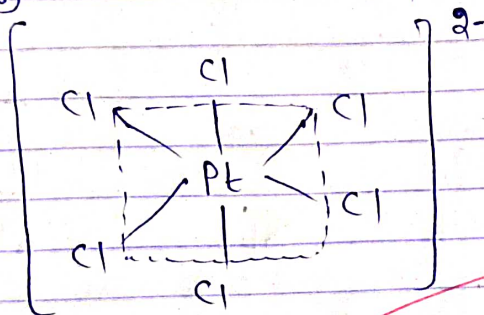 2-
Cl
Cl Cl
Pt
Cl
Cl
Cl